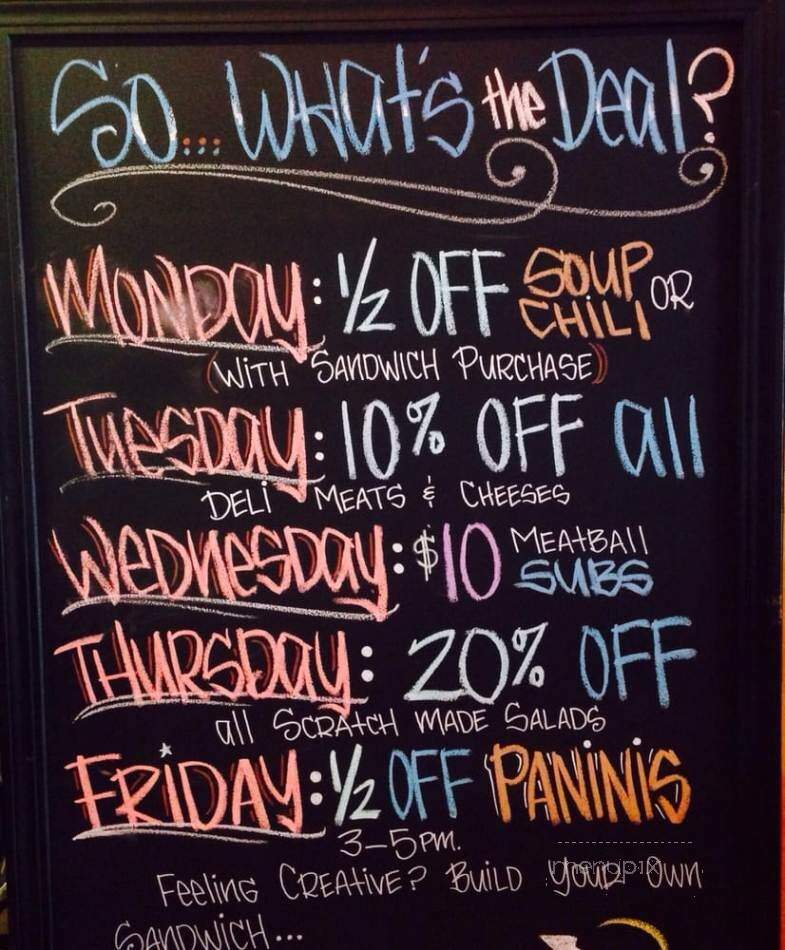 So... What's the Deal?
Monday: 1/2 OFF SOUP OR
CHILI
(WITH SANDWICH PURCHASE)
Tuesday: 10% OFF all
DELI MEATS & CHEESES
Wednesday: $10 MEATBALL
SUBS
THURSDAY: 20% OFF
all SCRATCH MADE SALADS
FRIDAY: 1/2 OFF PANINIS
3-5 PM.
Feeling Creative? Build your own
SANDWICH...
menupix